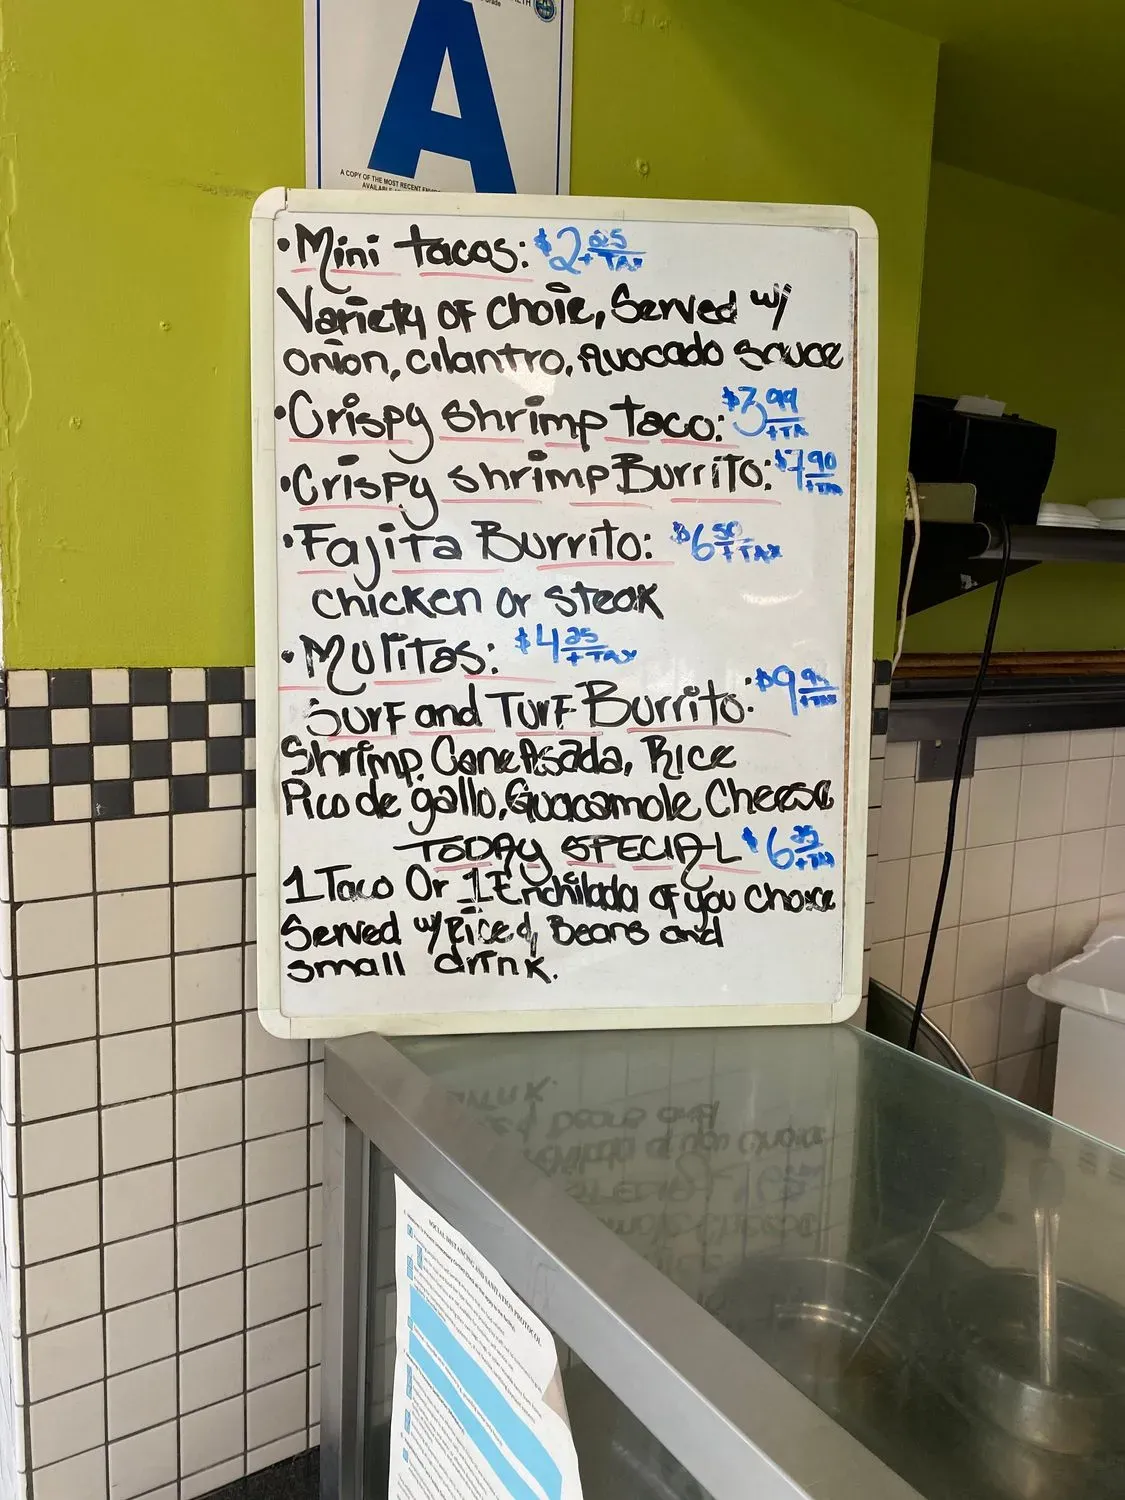 A
A COPY OF THE MOST RECENT
AVAILABLE
• Mini tacos: $2.25 + TAX
Variety of choie, Served w/
onion, cilantro, Avocado sauce
• Crispy shrimp taco: $3.99 + TX
• Crispy shrimp Burrito: $7.90 + TAX
• Fajita Burrito: $6.50 + TAX
chicken or steak
• Mulitas: $4.25 + TAX
Surf and Turf Burrito:
Shrimp, Carne Asada, Rice
Pico de gallo, Guacamole Cheese
TODAY SPECIAL
1 Taco Or 1 Enchilada of you choice
Served w/ Rice & Beans and
small drink.
SOCIAL DISTANCING AND SANITATION PROTOCOL